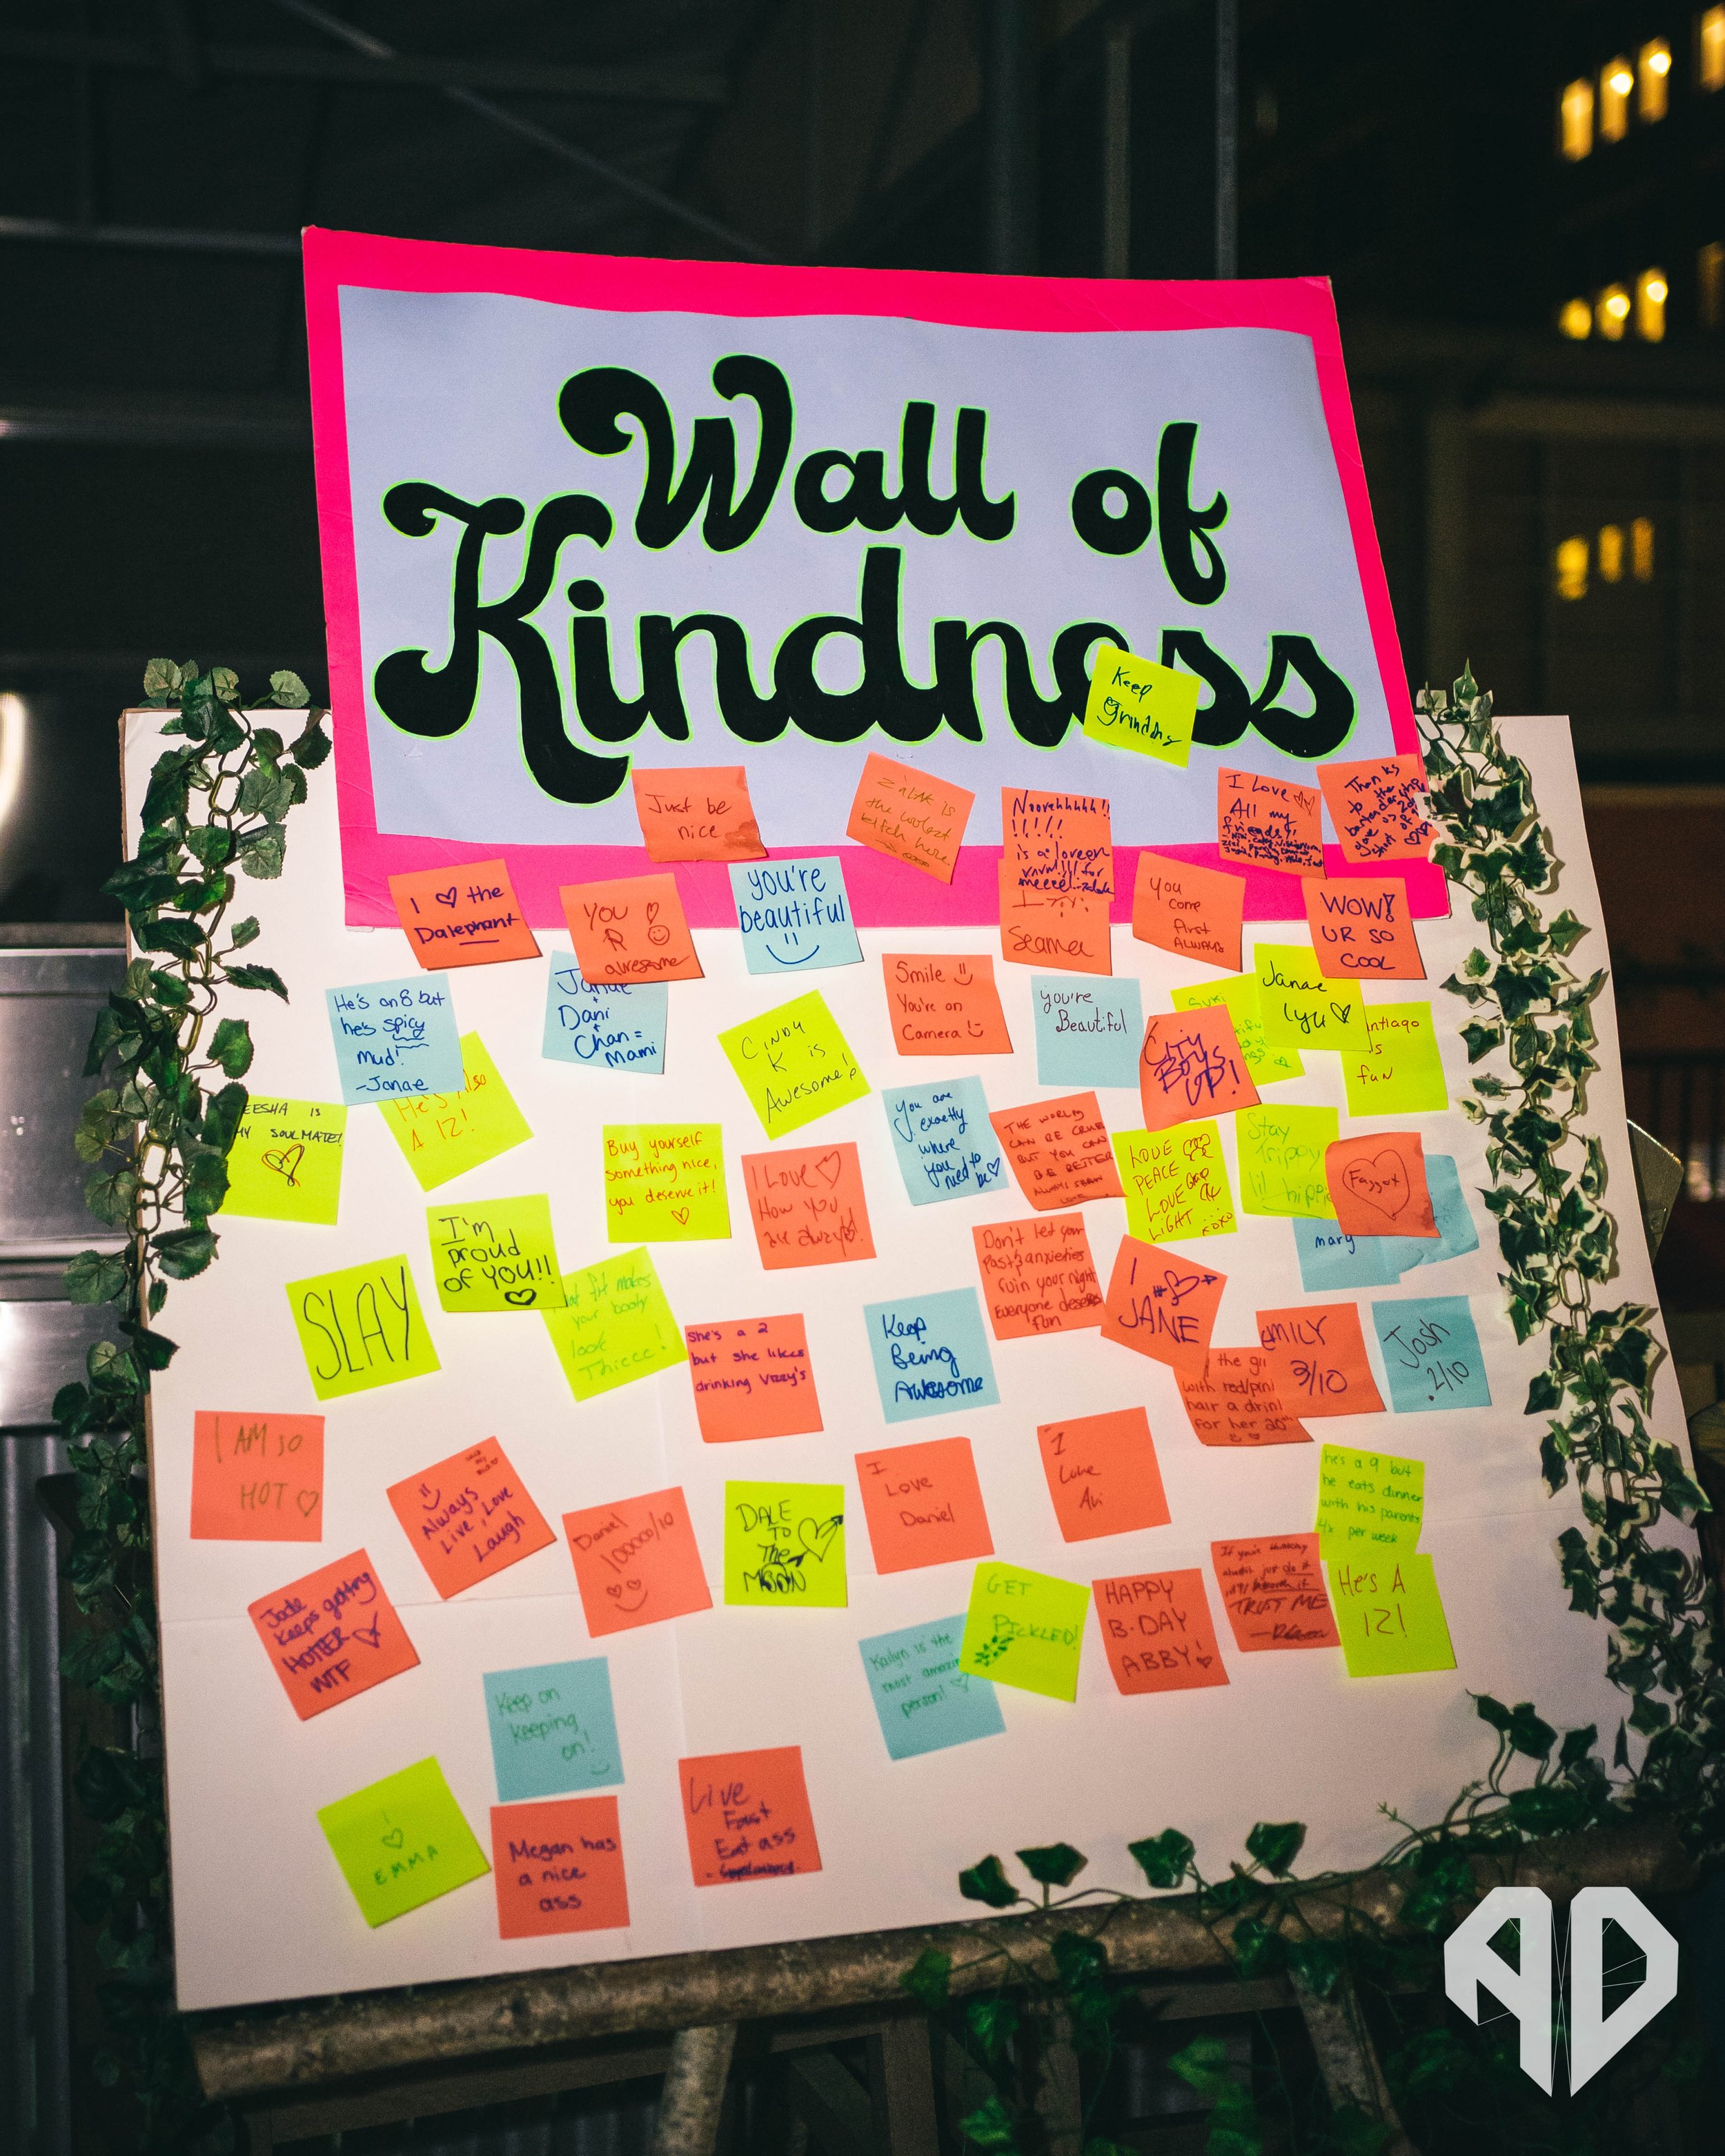 Wall of
Kindness
Keep
Just be
nice
is
the coolest
bitch here.
I Love
All my
Thanks
to the
I ♡ the
Dalephant
YOU
R
awesome
you're
beautiful
Seama
You
come
first
ALWAYS
WOW!
UR SO
COOL
He's an 8 but
he's spicy
mud!
-Janae
Janae
+
Dani
+
Chan =
Mami
CINDY
K is
Awesome!
Smile
You're on
Camera!
you're
Beautiful
City
Boys
UP!
Janae
Lyu ♡
is
fun
He's also
A 12!
EESHA IS
MY SOULMATE!
Buy yourself
something nice,
you deserve it!
I Love ♡
How you
You are
exactly
where
you
need to
be ♡
THE WORLD
CAN BE CRUEL
BUT YOU CAN
BE BETTER
LOVE
PEACE
LOVE
LIGHT
xoxo
Stay
Trippy
lil hippie
Faggot
mary
I'm
proud
of YOU!!
SLAY
fit makes
your booty
look
Thiccc!
She's a 2
but she likes
drinking Vizzy's
Keep
Being
Awesome
Don't let your
past & anxieties
ruin your night
Everyone deserves
fun
I
JANE
EMILY
3/10
the
with red/pink
hair a drink
for her 20th
Josh
.2/10
I AM SO
HOT ♡
Always
Live, Love
Laugh
Daniel
10000/10
DALE
TO
The
MOON
I
Love
Daniel
I
Love
Avi
he's a 9 but
he eats dinner
with his parents
4x per week
Jade
Keeps getting
HOTTER
WTF
Keep on
keeping
on!
Kailyn is the
most amazing
person!
GET
PICKLED!
HAPPY
B-DAY
ABBY!
If you're thinking
about it just do it
TRUST ME
He's A
12!
I
♡
EMMA
Megan has
a nice
ass
Live
Fast
Eat ass
AD